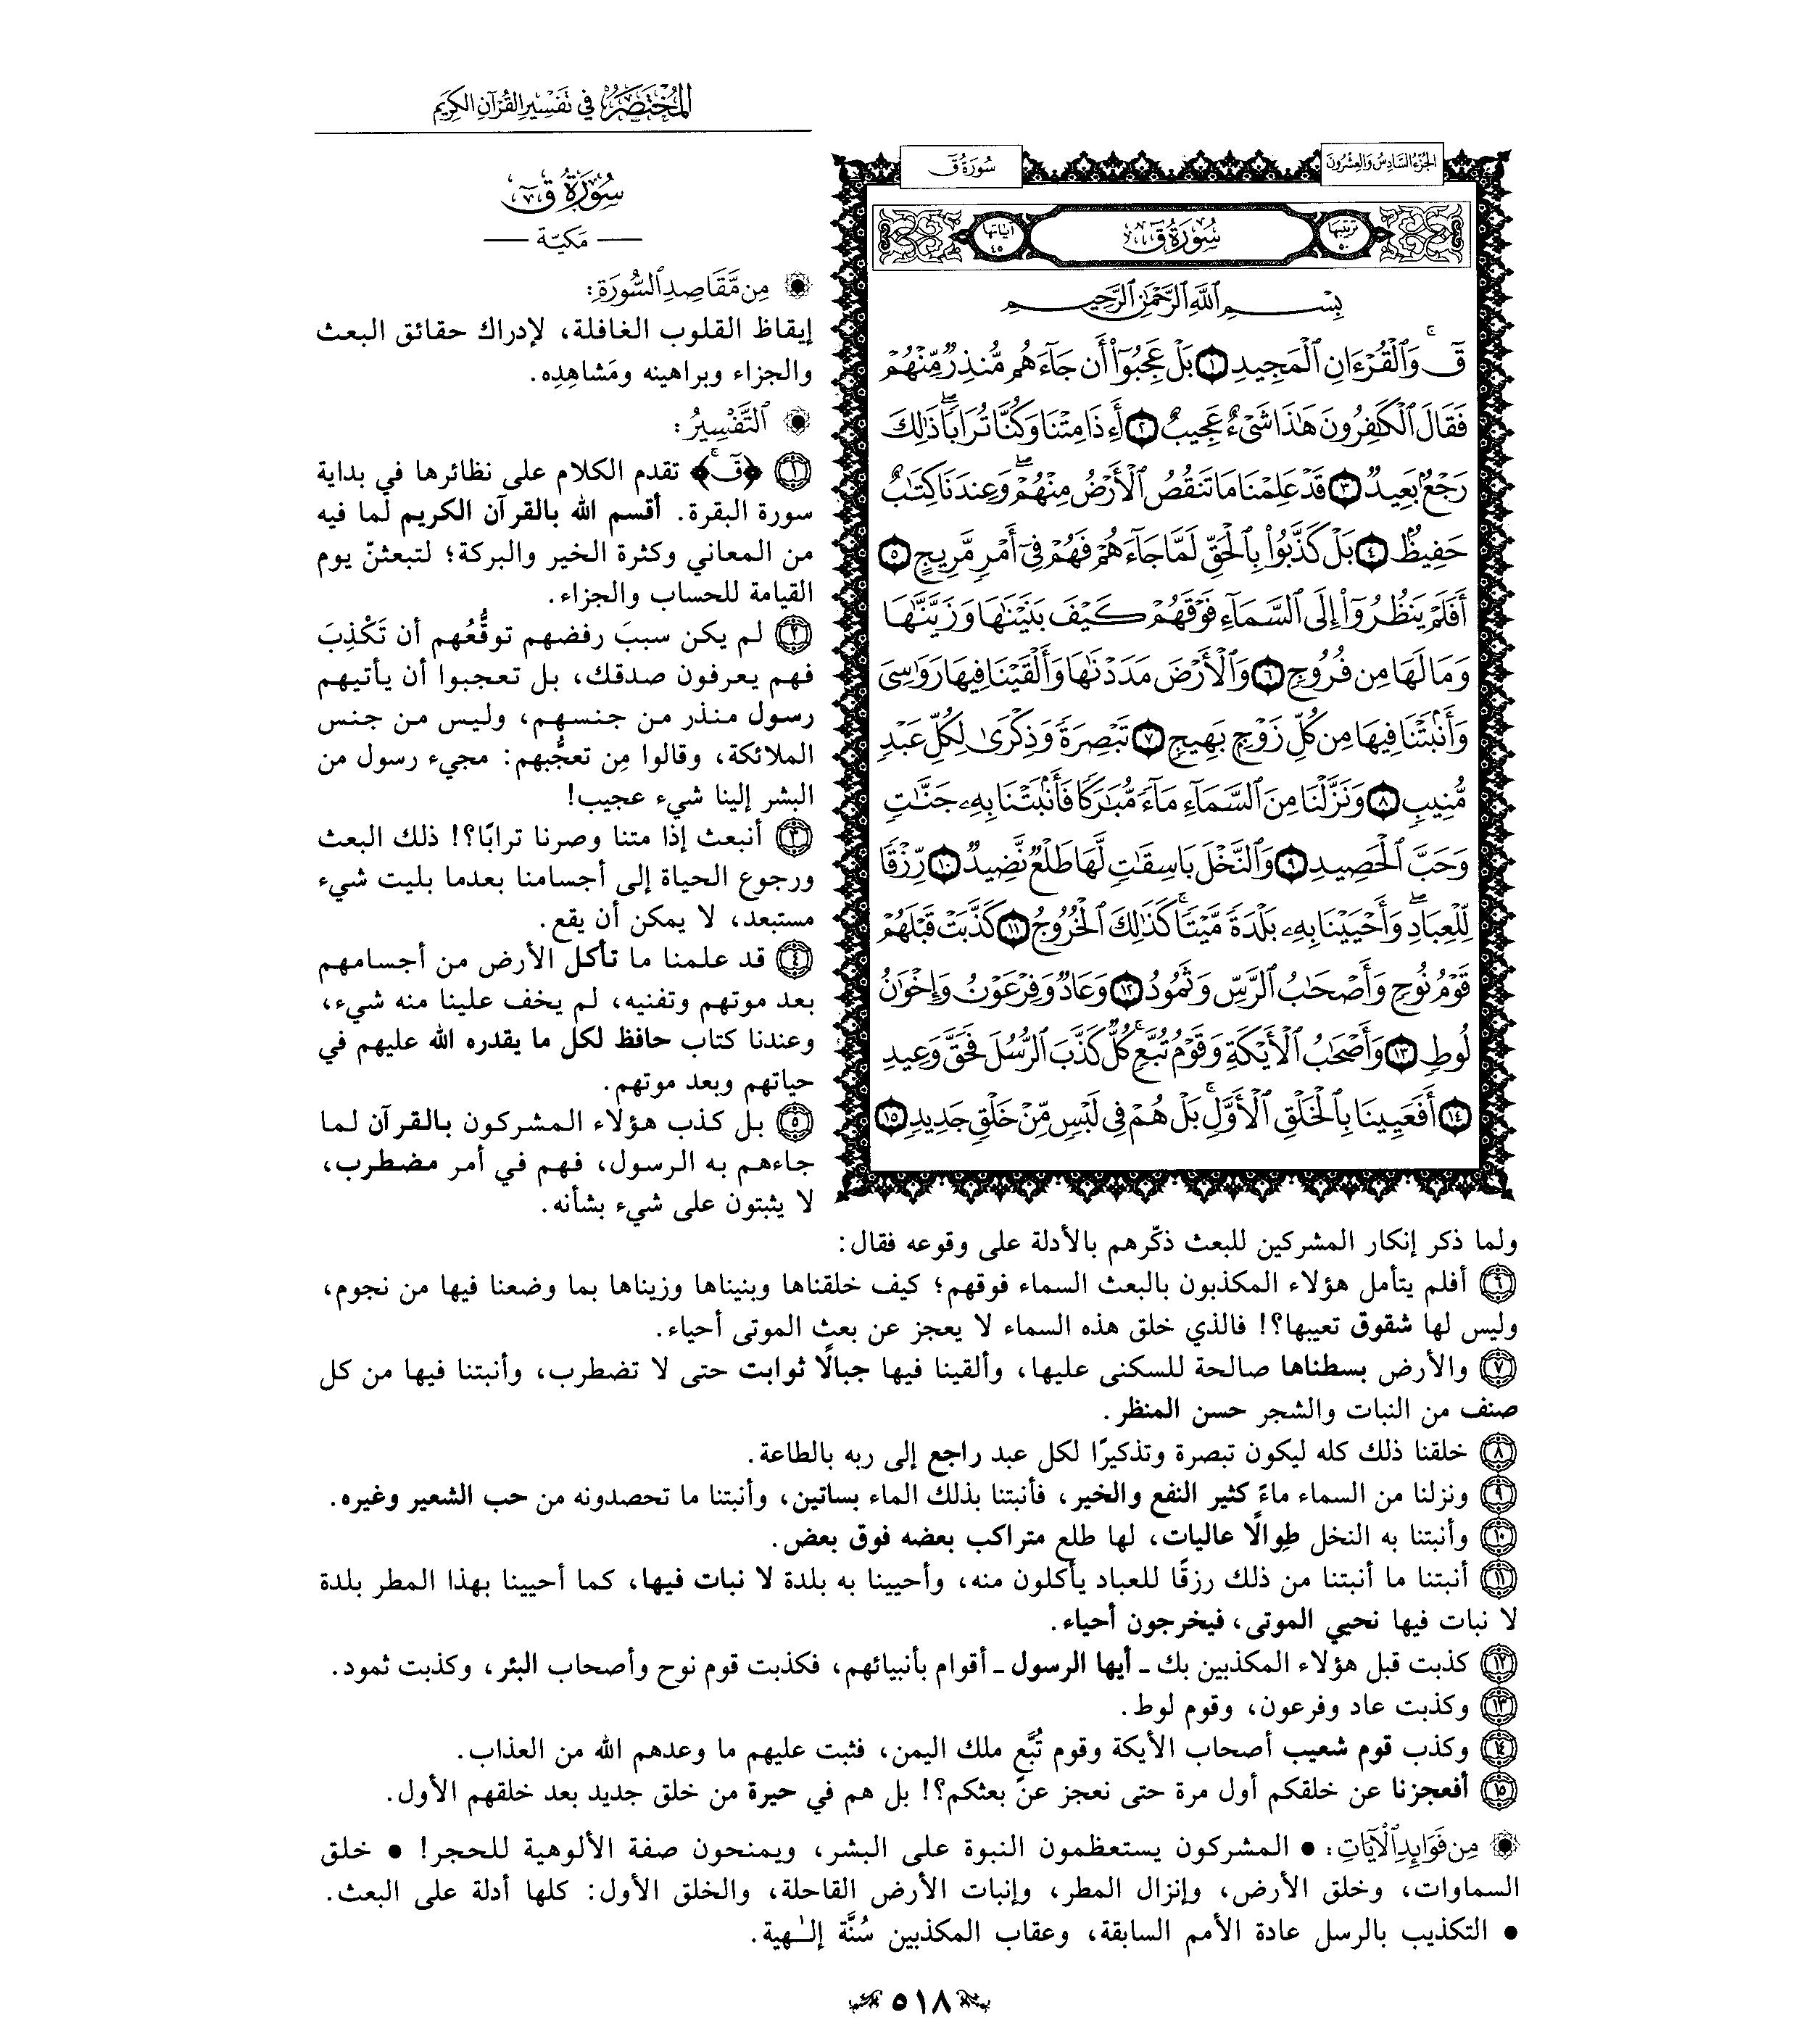 المُخْتَصَرُ في تَفْسِيرِ القُرْآنِ الكَرِيمِ
الجُزْءُ السَّادِسُ وَالعِشْرُونَ
سُورَةُ قٓ
ترتيبها ٥٠
سُورَةُ قٓ
آياتها ٤٥
بِسْمِ ٱللَّهِ ٱلرَّحْمَٰنِ ٱلرَّحِيمِ
قٓۚ وَٱلْقُرْءَانِ ٱلْمَجِيدِ ١ بَلْ عَجِبُوٓا۟ أَن جَآءَهُم مُّنذِرٌ مِّنْهُمْ
فَقَالَ ٱلْكَٰفِرُونَ هَٰذَا شَىْءٌ عَجِيبٌ ٢ أَءِذَا مِتْنَا وَكُنَّا تُرَابًاۖ ذَٰلِكَ
رَجْعٌۢ بَعِيدٌ ٣ قَدْ عَلِمْنَا مَا تَنقُصُ ٱلْأَرْضُ مِنْهُمْۖ وَعِندَنَا كِتَٰبٌ
حَفِيظٌۢ ٤ بَلْ كَذَّبُوا۟ بِٱلْحَقِّ لَمَّا جَآءَهُمْ فَهُمْ فِىٓ أَمْرٍ مَّرِيجٍ ٥
أَفَلَمْ يَنظُرُوٓا۟ إِلَى ٱلسَّمَآءِ فَوْقَهُمْ كَيْفَ بَنَيْنَٰهَا وَزَيَّنَّٰهَا
وَمَا لَهَا مِن فُرُوجٍ ٦ وَٱلْأَرْضَ مَدَدْنَٰهَا وَأَلْقَيْنَا فِيهَا رَوَٰسِىَ
وَأَنۢبَتْنَا فِيهَا مِن كُلِّ زَوْجٍۭ بَهِيجٍ ٧ تَبْصِرَةً وَذِكْرَىٰ لِكُلِّ عَبْدٍ
مُّنِيبٍ ٨ وَنَزَّلْنَا مِنَ ٱلسَّمَآءِ مَآءً مُّبَٰرَكًا فَأَنۢبَتْنَا بِهِۦ جَنَّٰتٍ
وَحَبَّ ٱلْحَصِيدِ ٩ وَٱلنَّخْلَ بَاسِقَٰتٍ لَّهَا طَلْعٌ نَّضِيدٌ ١٠ رِّزْقًا
لِّلْعِبَادِۖ وَأَحْيَيْنَا بِهِۦ بَلْدَةً مَّيْتًاۚ كَذَٰلِكَ ٱلْخُرُوجُ ١١ كَذَّبَتْ قَبْلَهُمْ
قَوْمُ نُوحٍ وَأَصْحَٰبُ ٱلرَّسِّ وَثَمُودُ ١٢ وَعَادٌ وَفِرْعَوْنُ وَإِخْوَٰنُ
لُوطٍ ١٣ وَأَصْحَٰبُ ٱلْأَيْكَةِ وَقَوْمُ تُبَّعٍۚ كُلٌّ كَذَّبَ ٱلرُّسُلَ فَحَقَّ وَعِيدِ
١٤ أَفَعَيِينَا بِٱلْخَلْقِ ٱلْأَوَّلِۚ بَلْ هُمْ فِى لَبْسٍ مِّنْ خَلْقٍ جَدِيدٍ ١٥
سُورَةُ قٓ
مَكيّة
مِن مَّقَاصِدِ ٱلسُّورَةِ:
إيقاظ القلوب الغافلة، لإدراك حقائق البعث
والجزاء وبراهينه ومَشاهِدِه.
ٱلتَّفْسِيرُ:
١ ﴿قٓۚ﴾ تقدم الكلام على نظائرها في بداية
سورة البقرة. أقسم الله بالقرآن الكريم لما فيه
من المعاني وكثرة الخير والبركة؛ لتبعثنّ يوم
القيامة للحساب والجزاء.
٢ لم يكن سببَ رفضهم توقُّعُهم أن تَكْذِبَ
فهم يعرفون صدقك، بل تعجبوا أن يأتيهم
رسول منذر من جنسهم، وليس من جنس
الملائكة، وقالوا مِن تعجُّبهم: مجيء رسول من
البشر إلينا شيء عجيب!
٣ أنبعث إذا متنا وصرنا ترابًا؟! ذلك البعث
ورجوع الحياة إلى أجسامنا بعدما بليت شيء
مستبعد، لا يمكن أن يقع.
٤ قد علمنا ما تأكل الأرض من أجسامهم
بعد موتهم وتفنيه، لم يخف علينا منه شيء،
وعندنا كتاب حافظ لكل ما يقدره الله عليهم في
حياتهم وبعد موتهم.
٥ بل كذب هؤلاء المشركون بالقرآن لما
جاءهم به الرسول، فهم في أمر مضطرب،
لا يثبتون على شيء بشأنه.
ولما ذكر إنكار المشركين للبعث ذكّرهم بالأدلة على وقوعه فقال:
٦ أفلم يتأمل هؤلاء المكذبون بالبعث السماء فوقهم؛ كيف خلقناها وبنيناها وزيناها بما وضعنا فيها من نجوم،
وليس لها شقوق تعيبها؟! فالذي خلق هذه السماء لا يعجز عن بعث الموتى أحياء.
٧ والأرض بسطناها صالحة للسكنى عليها، وألقينا فيها جبالًا ثوابت حتى لا تضطرب، وأنبتنا فيها من كل
صنف من النبات والشجر حسن المنظر.
٨ خلقنا ذلك كله ليكون تبصرة وتذكيرًا لكل عبد راجع إلى ربه بالطاعة.
٩ ونزلنا من السماء ماءً كثير النفع والخير، فأنبتنا بذلك الماء بساتين، وأنبتنا ما تحصدونه من حب الشعير وغيره.
١٠ وأنبتنا به النخل طِوالًا عاليات، لها طلع متراكب بعضه فوق بعض.
١١ أنبتنا ما أنبتنا من ذلك رزقًا للعباد يأكلون منه، وأحيينا به بلدة لا نبات فيها، كما أحيينا بهذا المطر بلدة
لا نبات فيها نحيي الموتى، فيخرجون أحياء.
١٢ كذبت قبل هؤلاء المكذبين بك ـ أيها الرسول ـ أقوام بأنبيائهم، فكذبت قوم نوح وأصحاب البئر، وكذبت ثمود.
١٣ وكذبت عاد وفرعون، وقوم لوط.
١٤ وكذب قوم شعيب أصحاب الأيكة وقوم تُبَّعٍ ملك اليمن، فثبت عليهم ما وعدهم الله من العذاب.
١٥ أفعجزنا عن خلقكم أول مرة حتى نعجز عن بعثكم؟! بل هم في حيرة من خلق جديد بعد خلقهم الأول.
مِن فَوَائِدِ ٱلْآيَاتِ: • المشركون يستعظمون النبوة على البشر، ويمنحون صفة الألوهية للحجر! • خلق
السماوات، وخلق الأرض، وإنزال المطر، وإنبات الأرض القاحلة، والخلق الأول: كلها أدلة على البعث.
• التكذيب بالرسل عادة الأمم السابقة، وعقاب المكذبين سُنَّة إلـٰهية.
٥١٨